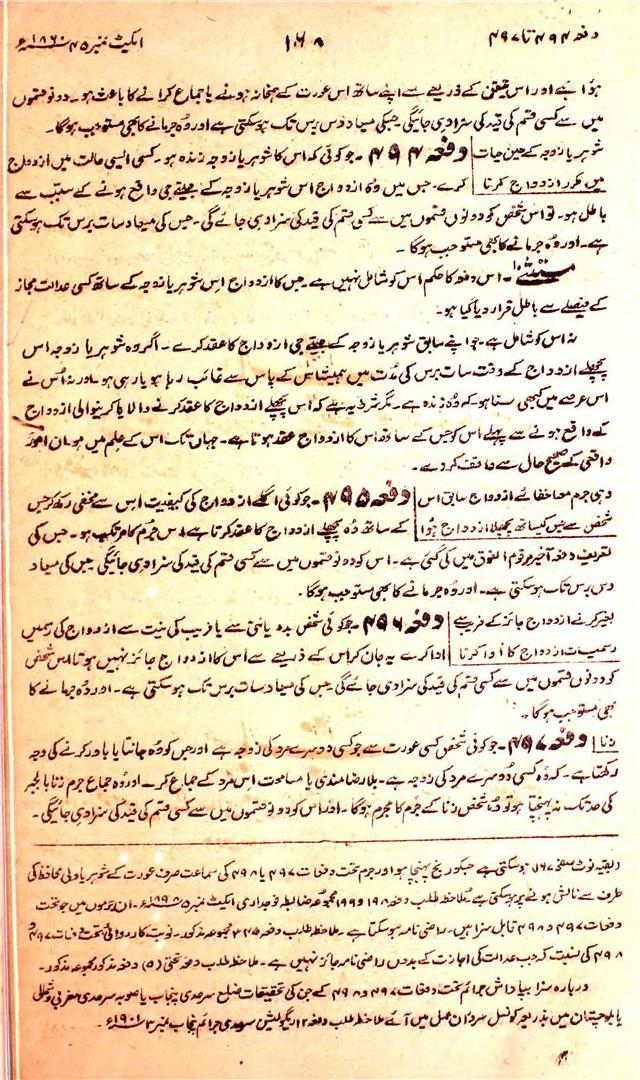 دفعہ ۴۹۴ تا ۴۹۷
۱۶۸
ایکٹ نمبر ۴۵ ۱۸۶۰ء
ہوا ہے اور اس یقین کے ذریعے سے اپنے ساتھ اس عورت کے ہمخانہ ہونے یا جماع کرانے کا باعث ہو۔ دونوں قسموں
میں سے کسی قسم کی قید کی سزا دی جائیگی۔ جسکی میعاد دس برس تک ہوسکتی ہے اور وہ جرمانے کا بھی مستوجب ہوگا۔
شوہر یا زوجہ کے حین حیات دفعہ ۴۹۴۔ جو کوئی کہ اس کا شوہر یا زوجہ زندہ ہو۔ کسی ایسی حالت میں ازدواج
میں مکرر ازدواج کرنا کرے۔ جس میں وہ ازدواج اس شوہر یا زوجہ کے جیتے جی واقع ہونے کے سبب سے
باطل ہو۔ تو اس شخص کو دونوں قسموں میں سے کسی قسم کی قید کی سزا دی جائے گی۔ جس کی میعاد سات برس تک ہوسکتی
ہے۔ اور وہ جرمانے کا بھی مستوجب ہوگا۔
مستثنیٰ۔ اس دفعہ کا حکم اس کو شامل نہیں ہے۔ جس کا ازدواج اس شوہر یا زوجہ کے ساتھ کسی عدالت مجاز
کے فیصلے سے باطل قرار دیا گیا ہو۔
نہ اس کو شامل ہے۔ جو اپنے سابق شوہر یا زوجہ کے جیتے جی ازدواج کا عقد کرے۔ اگر وہ شوہر یا زوجہ اس
پچھلے ازدواج کے وقت سات برس کی مدت میں ہمیشہ اس کے پاس سے غائب رہا ہو یا رہی ہو۔ اور نہ اس نے
اس عرصے میں کبھی سنا ہو کہ وہ زندہ ہے۔ مگر شرط یہ ہے کہ اس پچھلے ازدواج کا عقد کرنے والا یا کرنیوالی ازدواج
کے واقع ہونے سے پہلے اس کو جس کے ساتھ اس کا ازدواج عقد ہوتا ہے۔ جہاں تک اس کے علم میں ہو ان امور
واقعی کے صحیح حال سے واقف کر دے۔
وہی جرم معہ اخفائے ازدواج سابق اس دفعہ ۴۹۵۔ جو کوئی اگلے ازدواج کی کیفیت اس سے مخفی رکھ کر جس
شخص سے جس کیساتھ پچھلا ازدواج ہوا کے ساتھ وہ پچھلے ازدواج کا عقد کرتا ہے اس جرم کا مرتکب ہو۔ جس کی
تعریف دفعہ آخر مرقوم الفوق میں کی گئی ہے۔ اس کو دونوں قسموں میں سے کسی قسم کی قید کی سزا دی جائیگی جس کی میعاد
دس برس تک ہوسکتی ہے۔ اور وہ جرمانے کا بھی مستوجب ہوگا۔
بغیر کرنے ازدواج جائز کے فریب سے دفعہ ۴۹۶۔ جو کوئی شخص بددیانتی سے یا فریب کی نیت سے ازدواج کی رسمیں
رسمیات ازدواج کا ادا کرنا ادا کرے یہ جان کر اس کے ذریعے سے اس کا ازدواج جائز نہیں ہوتا اس شخص
کو دونوں قسموں میں سے کسی قسم کی قید کی سزا دی جائے گی جس کی میعاد سات برس تک ہوسکتی ہے۔ اور وہ جرمانے کا
بھی مستوجب ہوگا۔
زنا دفعہ ۴۹۷۔ جو کوئی شخص کسی عورت سے جو کسی دوسرے مرد کی زوجہ ہے اور جس کو وہ جانتا یا باور کرنے کی وجہ
رکھتا ہے۔ کہ وہ کسی دوسرے مرد کی زوجہ ہے۔ بلا رضامندی یا مسامحت اس مرد کے جماع کرے۔ اور وہ جماع جرم زنا بالجبر
کی حد تک نہ پہنچتا ہو تو وہ شخص زنا کے جرم کا مجرم ہوگا۔ اور اس کو دونوں قسموں میں سے کسی قسم کی قید کی سزا دی جائیگی۔
(بقیہ نوٹ صفحہ ۱۶۷) ہوسکتی ہے جسکو رنج پہنچا ہو اور جرم تحت دفعات ۴۹۷ یا ۴۹۸ کی سماعت صرف عورت کے شوہر یا ولی محافظ کی
طرف سے نالش ہونے پر ہوسکتی ہے ملاحظہ طلب دفعہ ۱۹۸ و ۱۹۹ مجموعہ ضابطہ فوجداری ایکٹ نمبر ۵ ۱۸۹۸ء۔ ان جرموں میں جو تحت
دفعات ۴۹۷ و ۴۹۸ قابل سزا ہیں۔ راضی نامہ ہوسکتا ہے۔ ملاحظہ طلب دفعہ ۳۴۵ مجموعہ مذکور۔ نوبت کارروائی تحت دفعات ۴۹۷ و
۴۹۸ کی نسبت کہ جب عدالت کی اجازت کے بدوں راضی نامہ جائز نہیں ہے۔ ملاحظہ طلب دفعہ تحتی (۵) دفعہ مذکور مجموعہ مذکور۔
دربارہ سزا بپاداش جرائم تحت دفعات ۴۹۷ و ۴۹۸ کے جن کی تحقیقات ضلع سرحدی پنجاب یا صوبہ سرحدی مغربی و شمالی
یا بلوچستان میں بذریعہ کونسل سرداران عمل میں آئے ملاحظہ طلب دفعہ ۱۲ ریگولیشن سرحدی جرائم پنجاب نمبر ۳ ۱۹۰۱ء۔